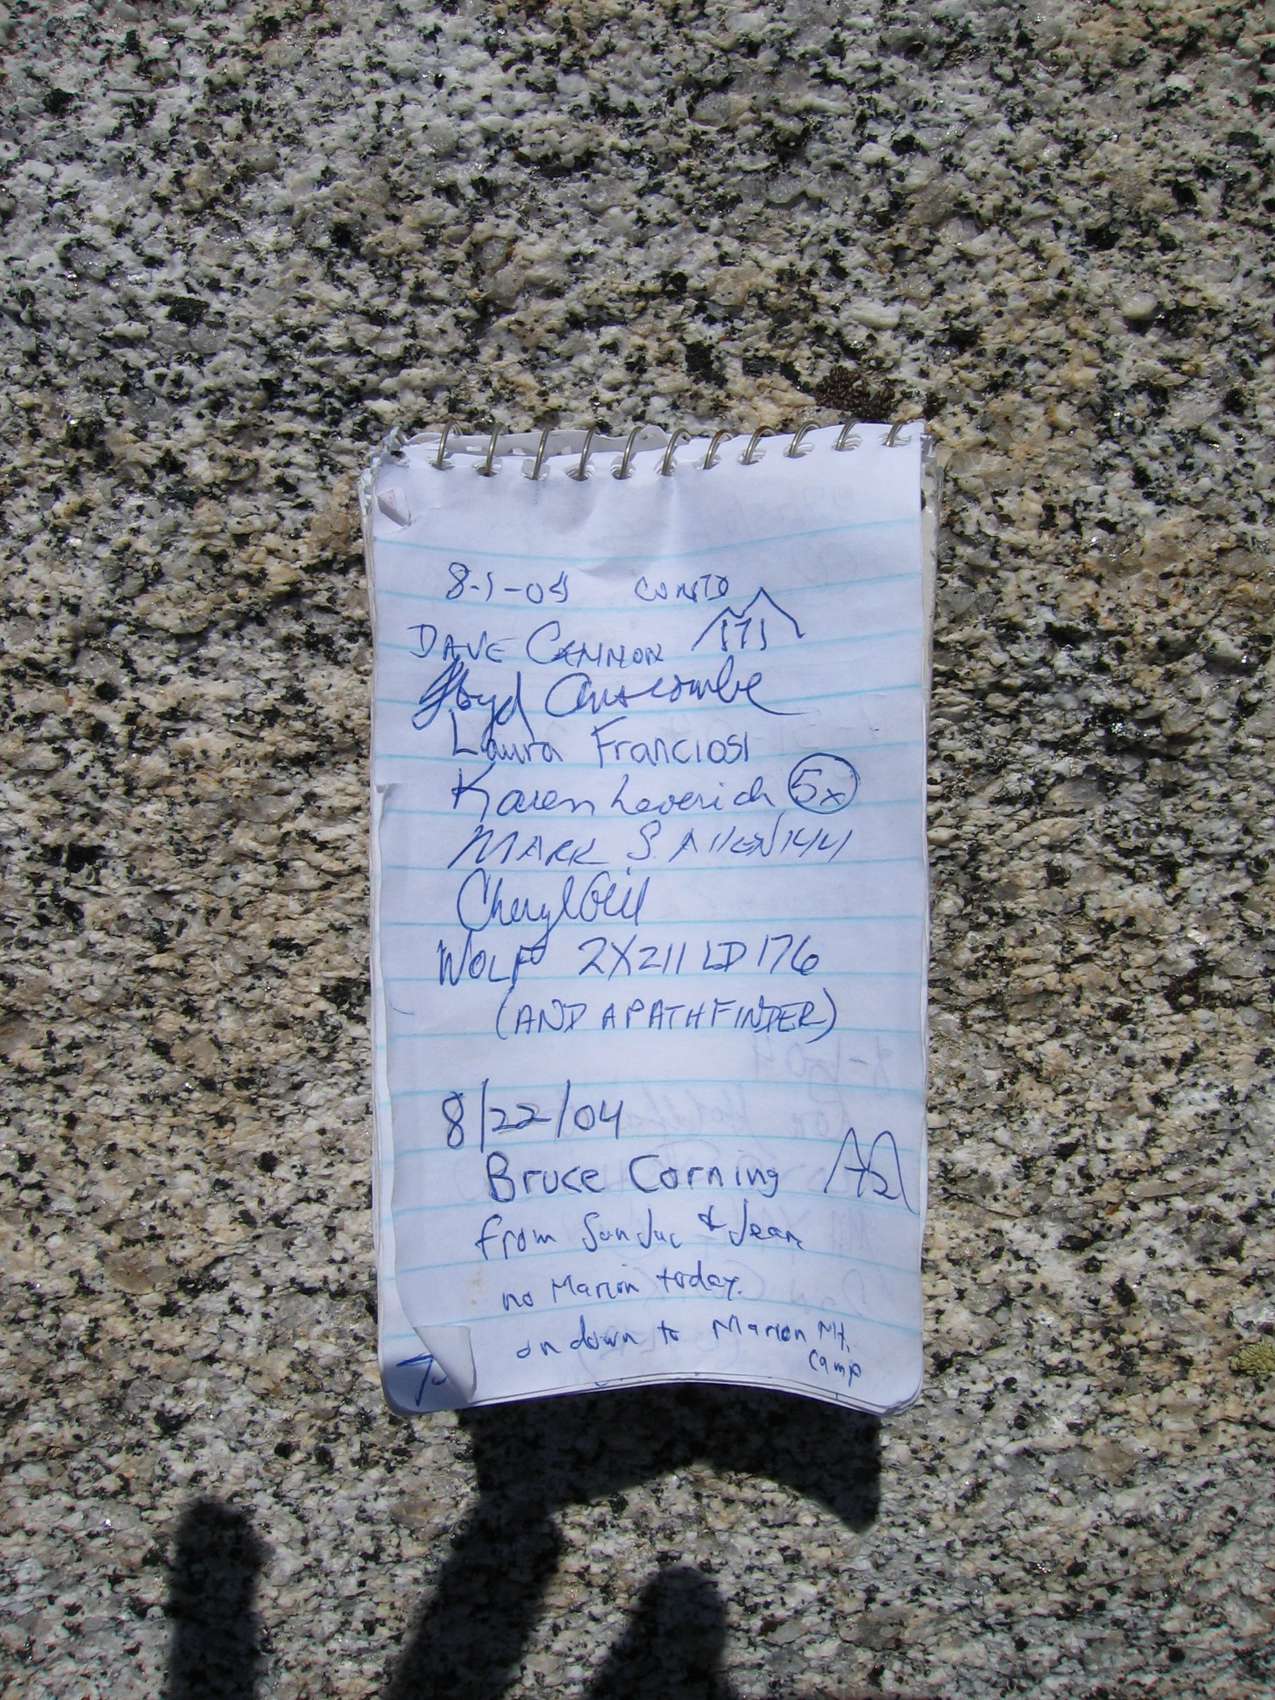 8-1-04
DAVE CANNON 171
Laura Franciosi
Karen Leverich 5x
MARK S. Allen
Cheryl Gill
WOLF 2X211 LD176
(AND A PATHFINDER)
8/22/04
Bruce Corning
from San Jac & Jean
no Marion today.
on down to Marion Mt.
Camp